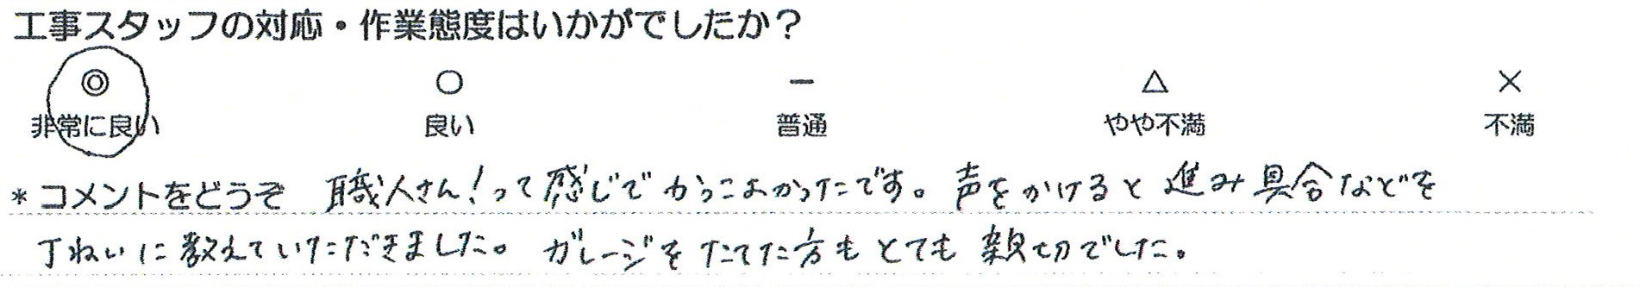 工事スタッフの対応・作業態度はいかがでしたか？
◎ ○ － △ ×
非常に良い 良い 普通 やや不満 不満
＊コメントをどうぞ 職人さん！って感じでかっこよかったです。声をかけると進み具合などを
丁ねいに教えていただきました。ガレージをたてた方もとても親切でした。